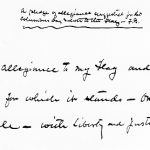 A pledge of allegiance suggested for
Columbus Day salute to the Flag — F.B.
allegiance to my Flag and
for which it stands – on
le – with Liberty and Justi